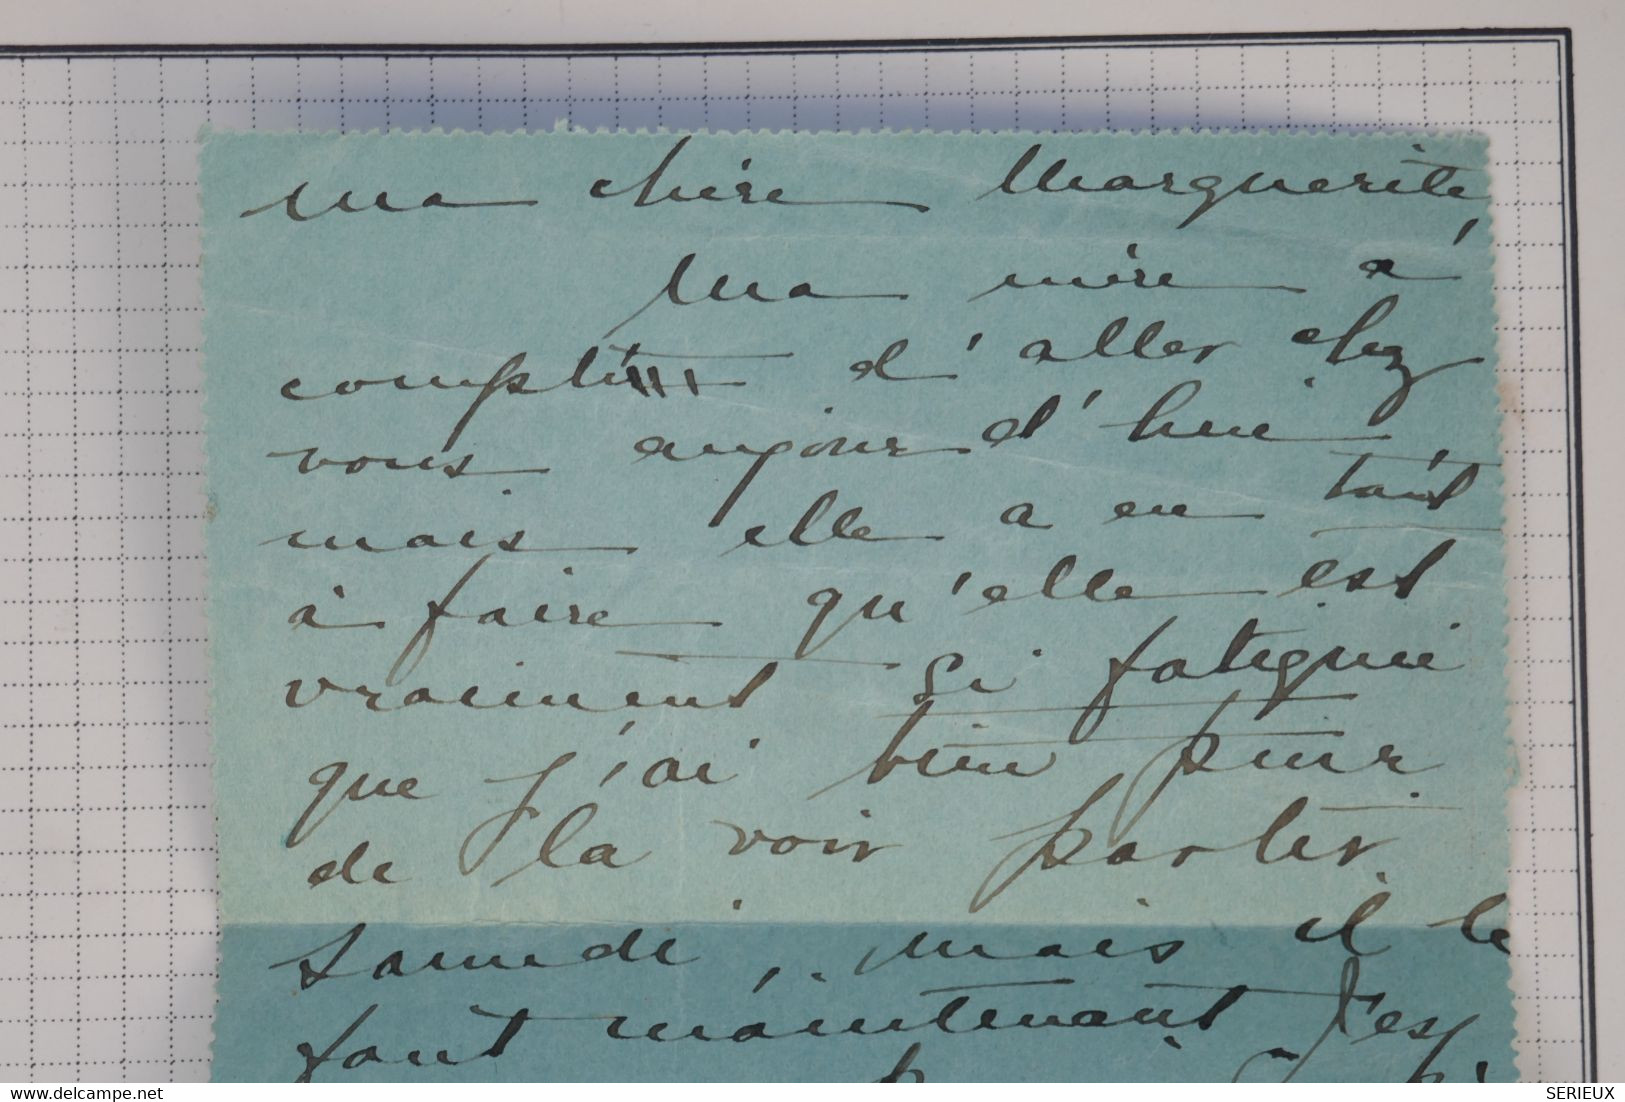 Ma chère Marguerite
Ma mère a
d'aller chez
vous aujourd'hui,
mais elle a eu tant
à faire qu'elle est
vraiment si fatiguée
que j'ai bien peur
de la voir partir
samedi, mais il le
faut maintenant
delcampe.net
SERIEUX